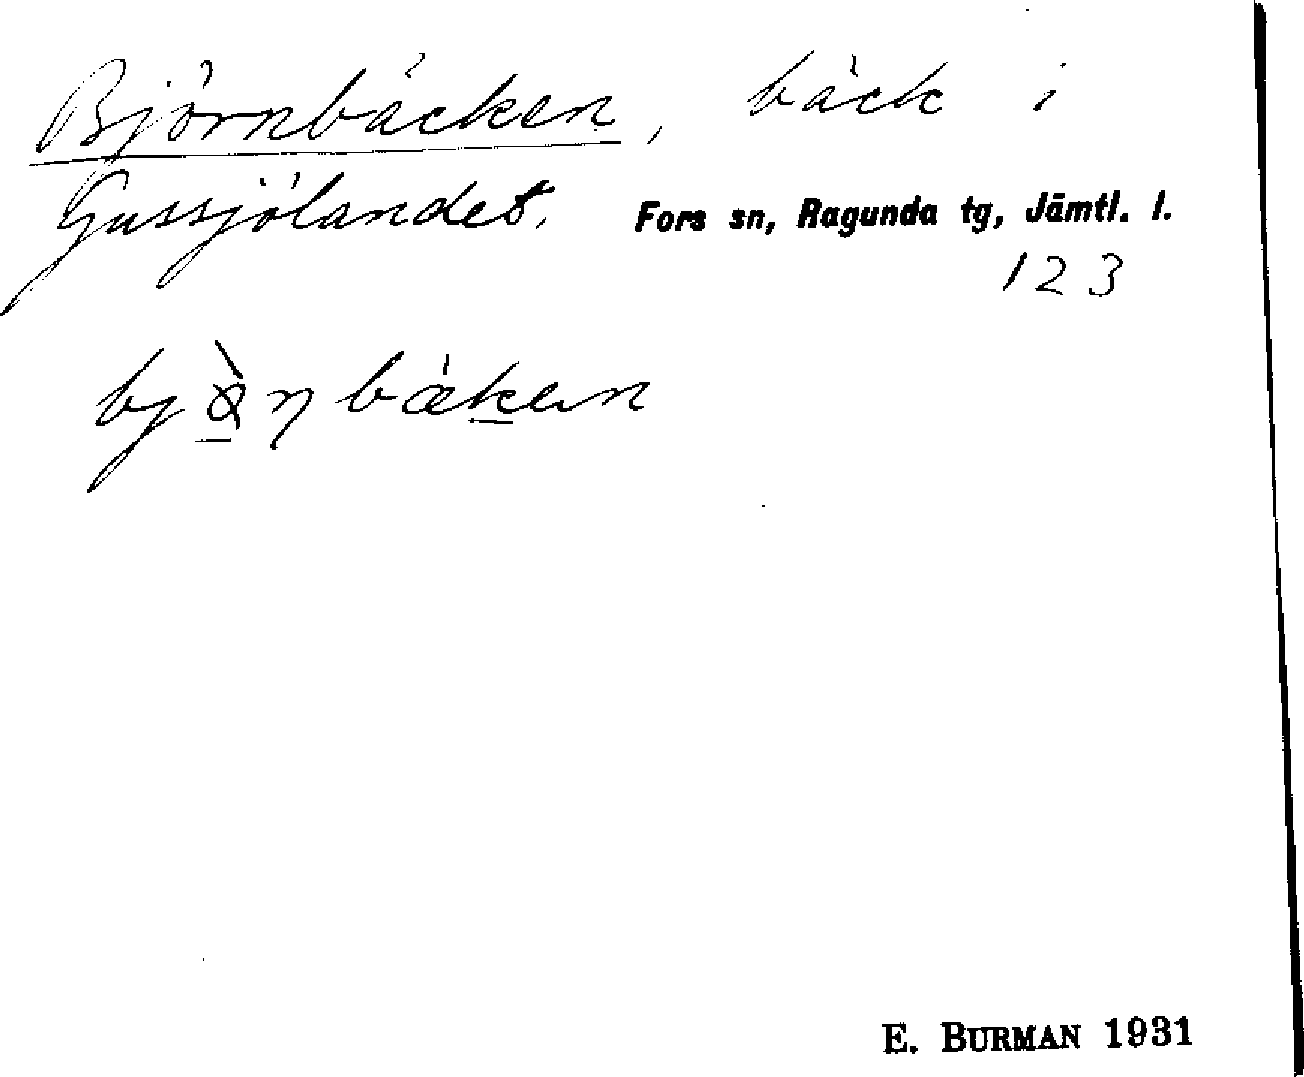 Björnbäcken, bäck i
Gussjölandet, Fors sn, Ragunda tg, Jämtl. l.
123
E. BURMAN 1931